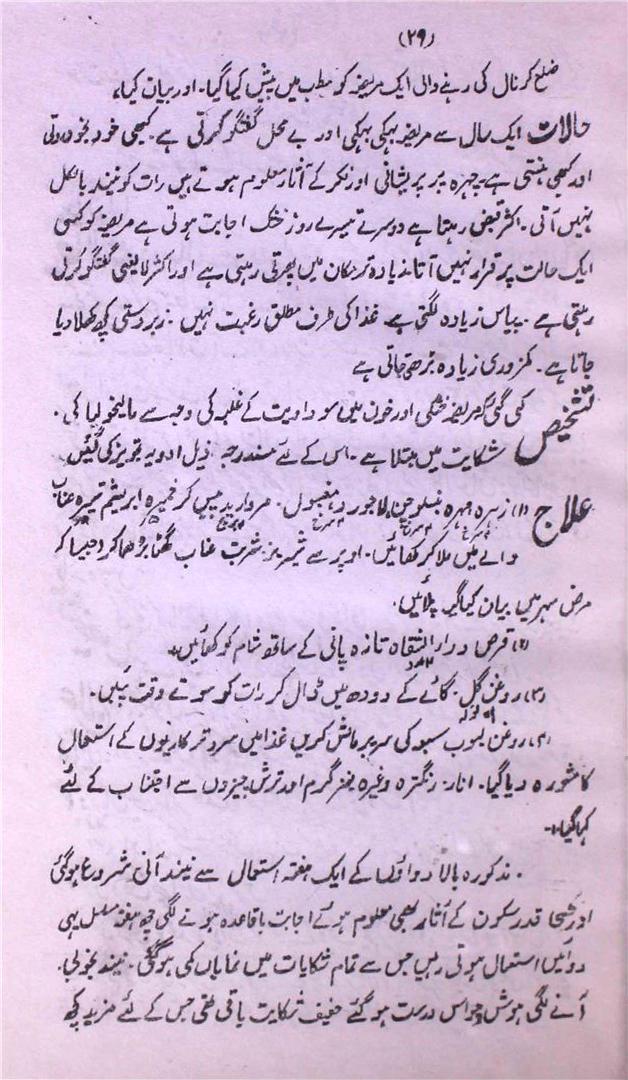 (۲۹)
ضلع کرنال کی رہنے والی ایک مریضہ کو مطب میں پیش کیا گیا۔ اور بیان کیا،
حالات ایک سال سے مریضہ بہکی بہکی اور بے محل گفتگو کرتی ہے۔ کبھی خود بخود روتی
اور کبھی ہنستی ہے۔ چہرہ پر پریشانی اور فکر کے آثار معلوم ہوتے ہیں رات کو نیند بالکل
نہیں آتی۔ اکثر قبض رہتا ہے دوسرے تیسرے روز خشک اجابت ہوتی ہے مریضہ کو کسی
ایک حالت پر قرار نہیں آتا زیادہ تر مکان میں پھرتی رہتی ہے اور اکثر لایعنی گفتگو کرتی
رہتی ہے۔ پیاس زیادہ لگتی ہے غذا کی طرف مطلق رغبت نہیں۔ زبردستی کچھ کھلا دیا
جاتا ہے۔ کمزوری زیادہ بڑھتی جاتی ہے
تشخیص کی گئی کہ مریضہ خشکی اور خون میں سوداویت کے غلبہ کی وجہ سے مالیخولیا کی۔
شکایت میں مبتلا ہے۔ اس کے لئے مندرجہ ذیل ادویہ تجویز کی گئیں
علاج (۱) زہرہ مہرہ لاجورد مغسول۔ مروارید پیس کر خمیرہ ابریشم شیرہ عناب
والے میں ملا کر کھائیں۔ اوپر سے شربت عناب گھٹا بڑھا کر (جیسا کہ
مرض سہر میں بیان کیا گیا) پلائیں۔
(۲) قرص دوار الشفاء تازہ پانی کے ساتھ شام کو کھائیں۔
(۳) روغن گل۔ گائے کے دودھ میں ڈال کر رات کو سوتے وقت پئیں۔
(۴) روغن لبوب سبعہ کی سر پر مالش کریں غذا میں سرد تر ترکاریوں کے استعمال
کا مشورہ دیا گیا۔ انار۔ رنگترہ وغیرہ گرم اور ترش چیزوں سے اجتناب کے لئے
کہا گیا۔
مذکورہ بالا دواؤں کے ایک ہفتہ استعمال سے نیند آنی شروع ہو گئی
اور قدر سکون کے آثار بھی معلوم ہوئے اجابت باقاعدہ ہونے لگی چھ ہفتہ مسلسل یہی
دوائیں استعمال ہوتی رہیں جس سے تمام شکایات میں نمایاں کمی ہو گئی۔ نیند بخوبی۔
آنے لگی ہوش و حواس درست ہو گئے خفیف شکایت باقی تھی جس کے لئے مزید کچھ